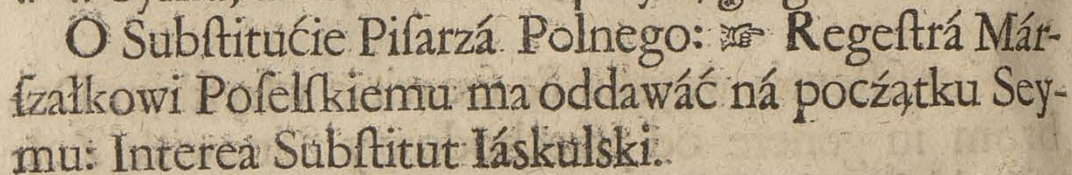 O Subſtitućie Piſarzá Polnego: ☞ Regeſtrá Már-
ſzałkowi Poſelſkiemu ma oddawáć ná poćźątku Sey-
mu: Interea Subſtitut Iáskulski.